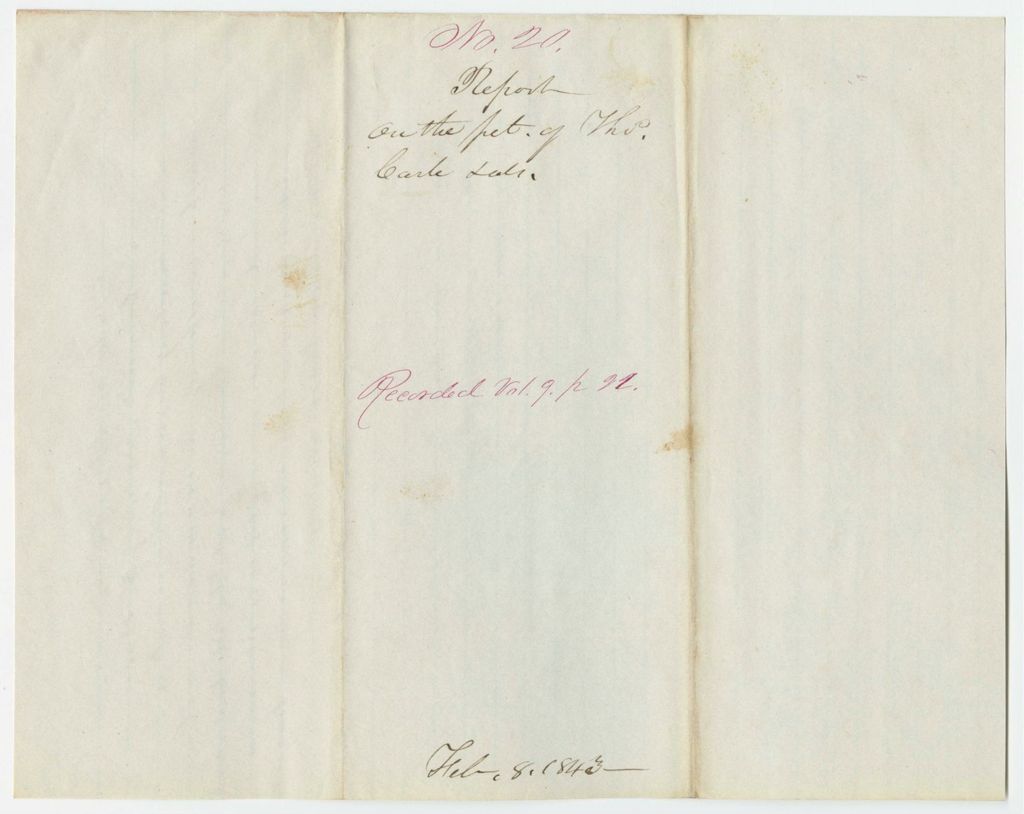 No. 20.
Report
on the pet. of Thos.
Carle
Recorded Vol. 9. p 92.
Feb. 8. 1843